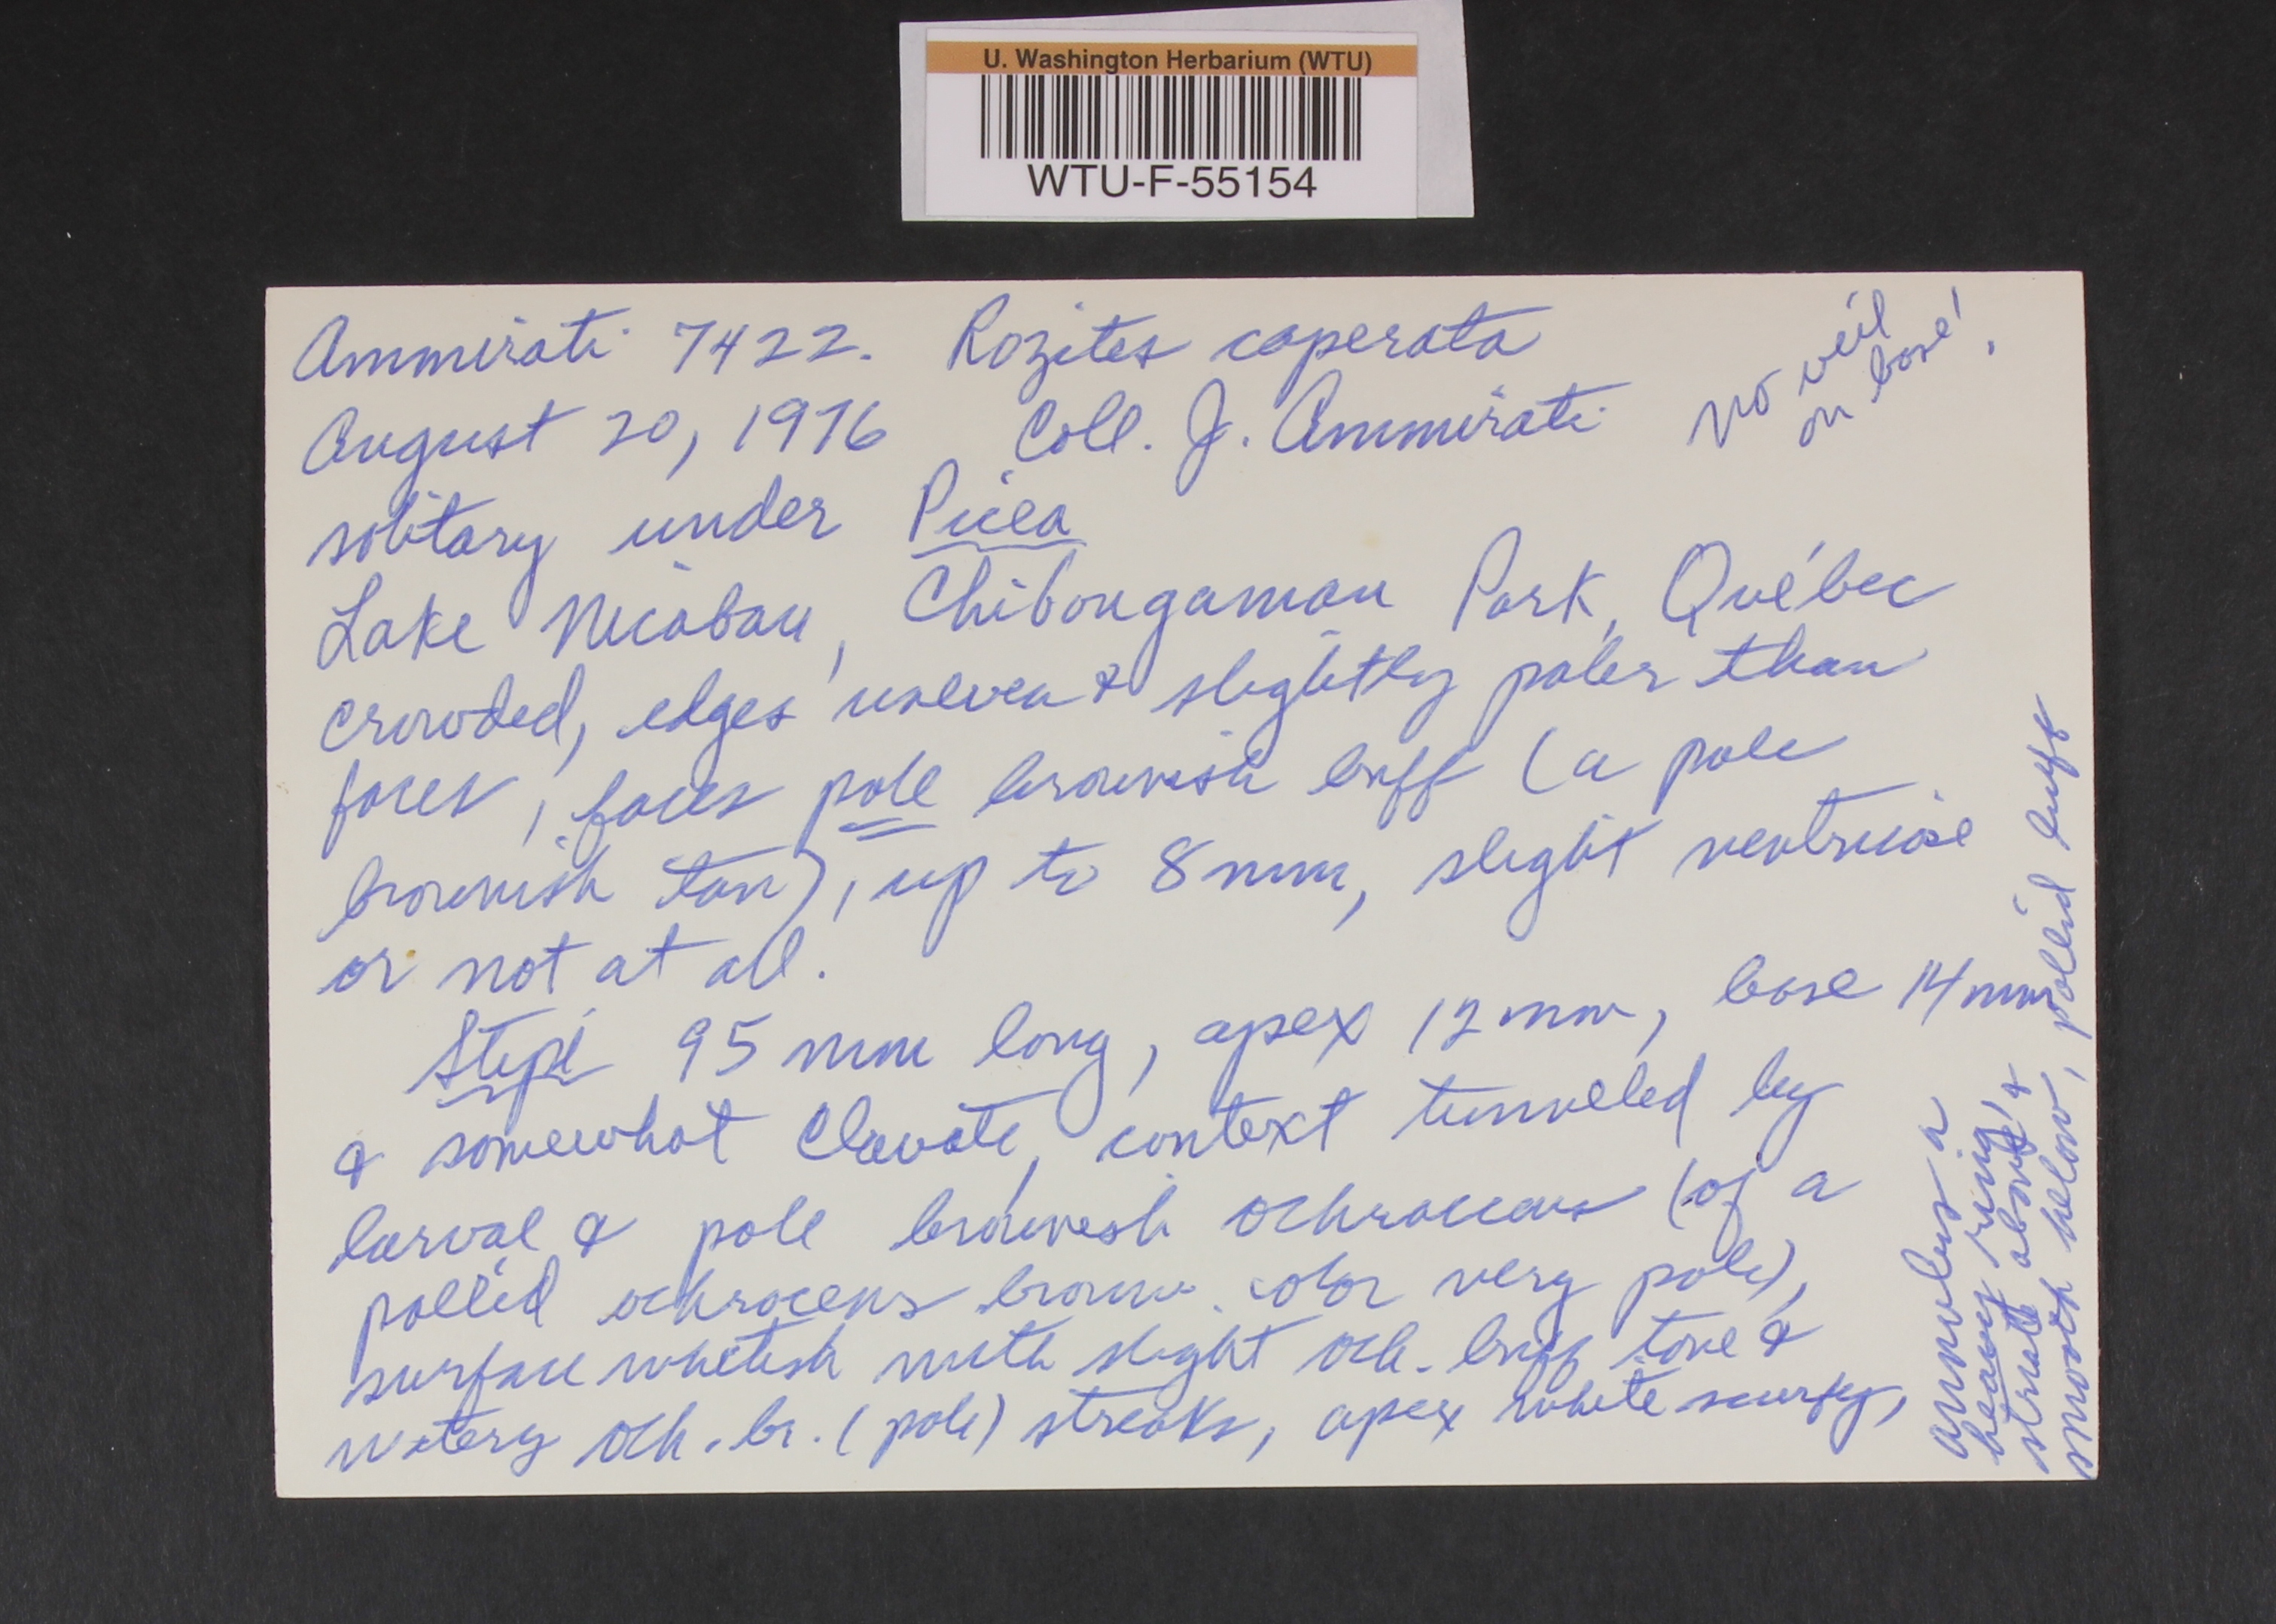 U. Washington Herbarium (WTU)
WTU-F-55154
Ammirati 7422. Rozites caperata
August 20, 1976 Coll. J. Ammirati
no veil
on base!
solitary under Picea
Lake Nicabau, Chibougamau Park, Québec
crowded, edges uneven & slightly paler than
faces, faces pale brownish buff (a pale
brownish tan), up to 8 mm, slight ventricose
or not at all.
Stipe 95 mm long, apex 12 mm, base 14 mm
& somewhat clavate, context tunneled by
larvae & pale brownish ochraceous (of a
pallid ochraceus brown color very pale),
surface whitish with slight och. buff tone &
watery och. br. (pale) streaks, apex white scurfy,
annulus a
heavy ring,
striate above &
smooth below, pallid buff